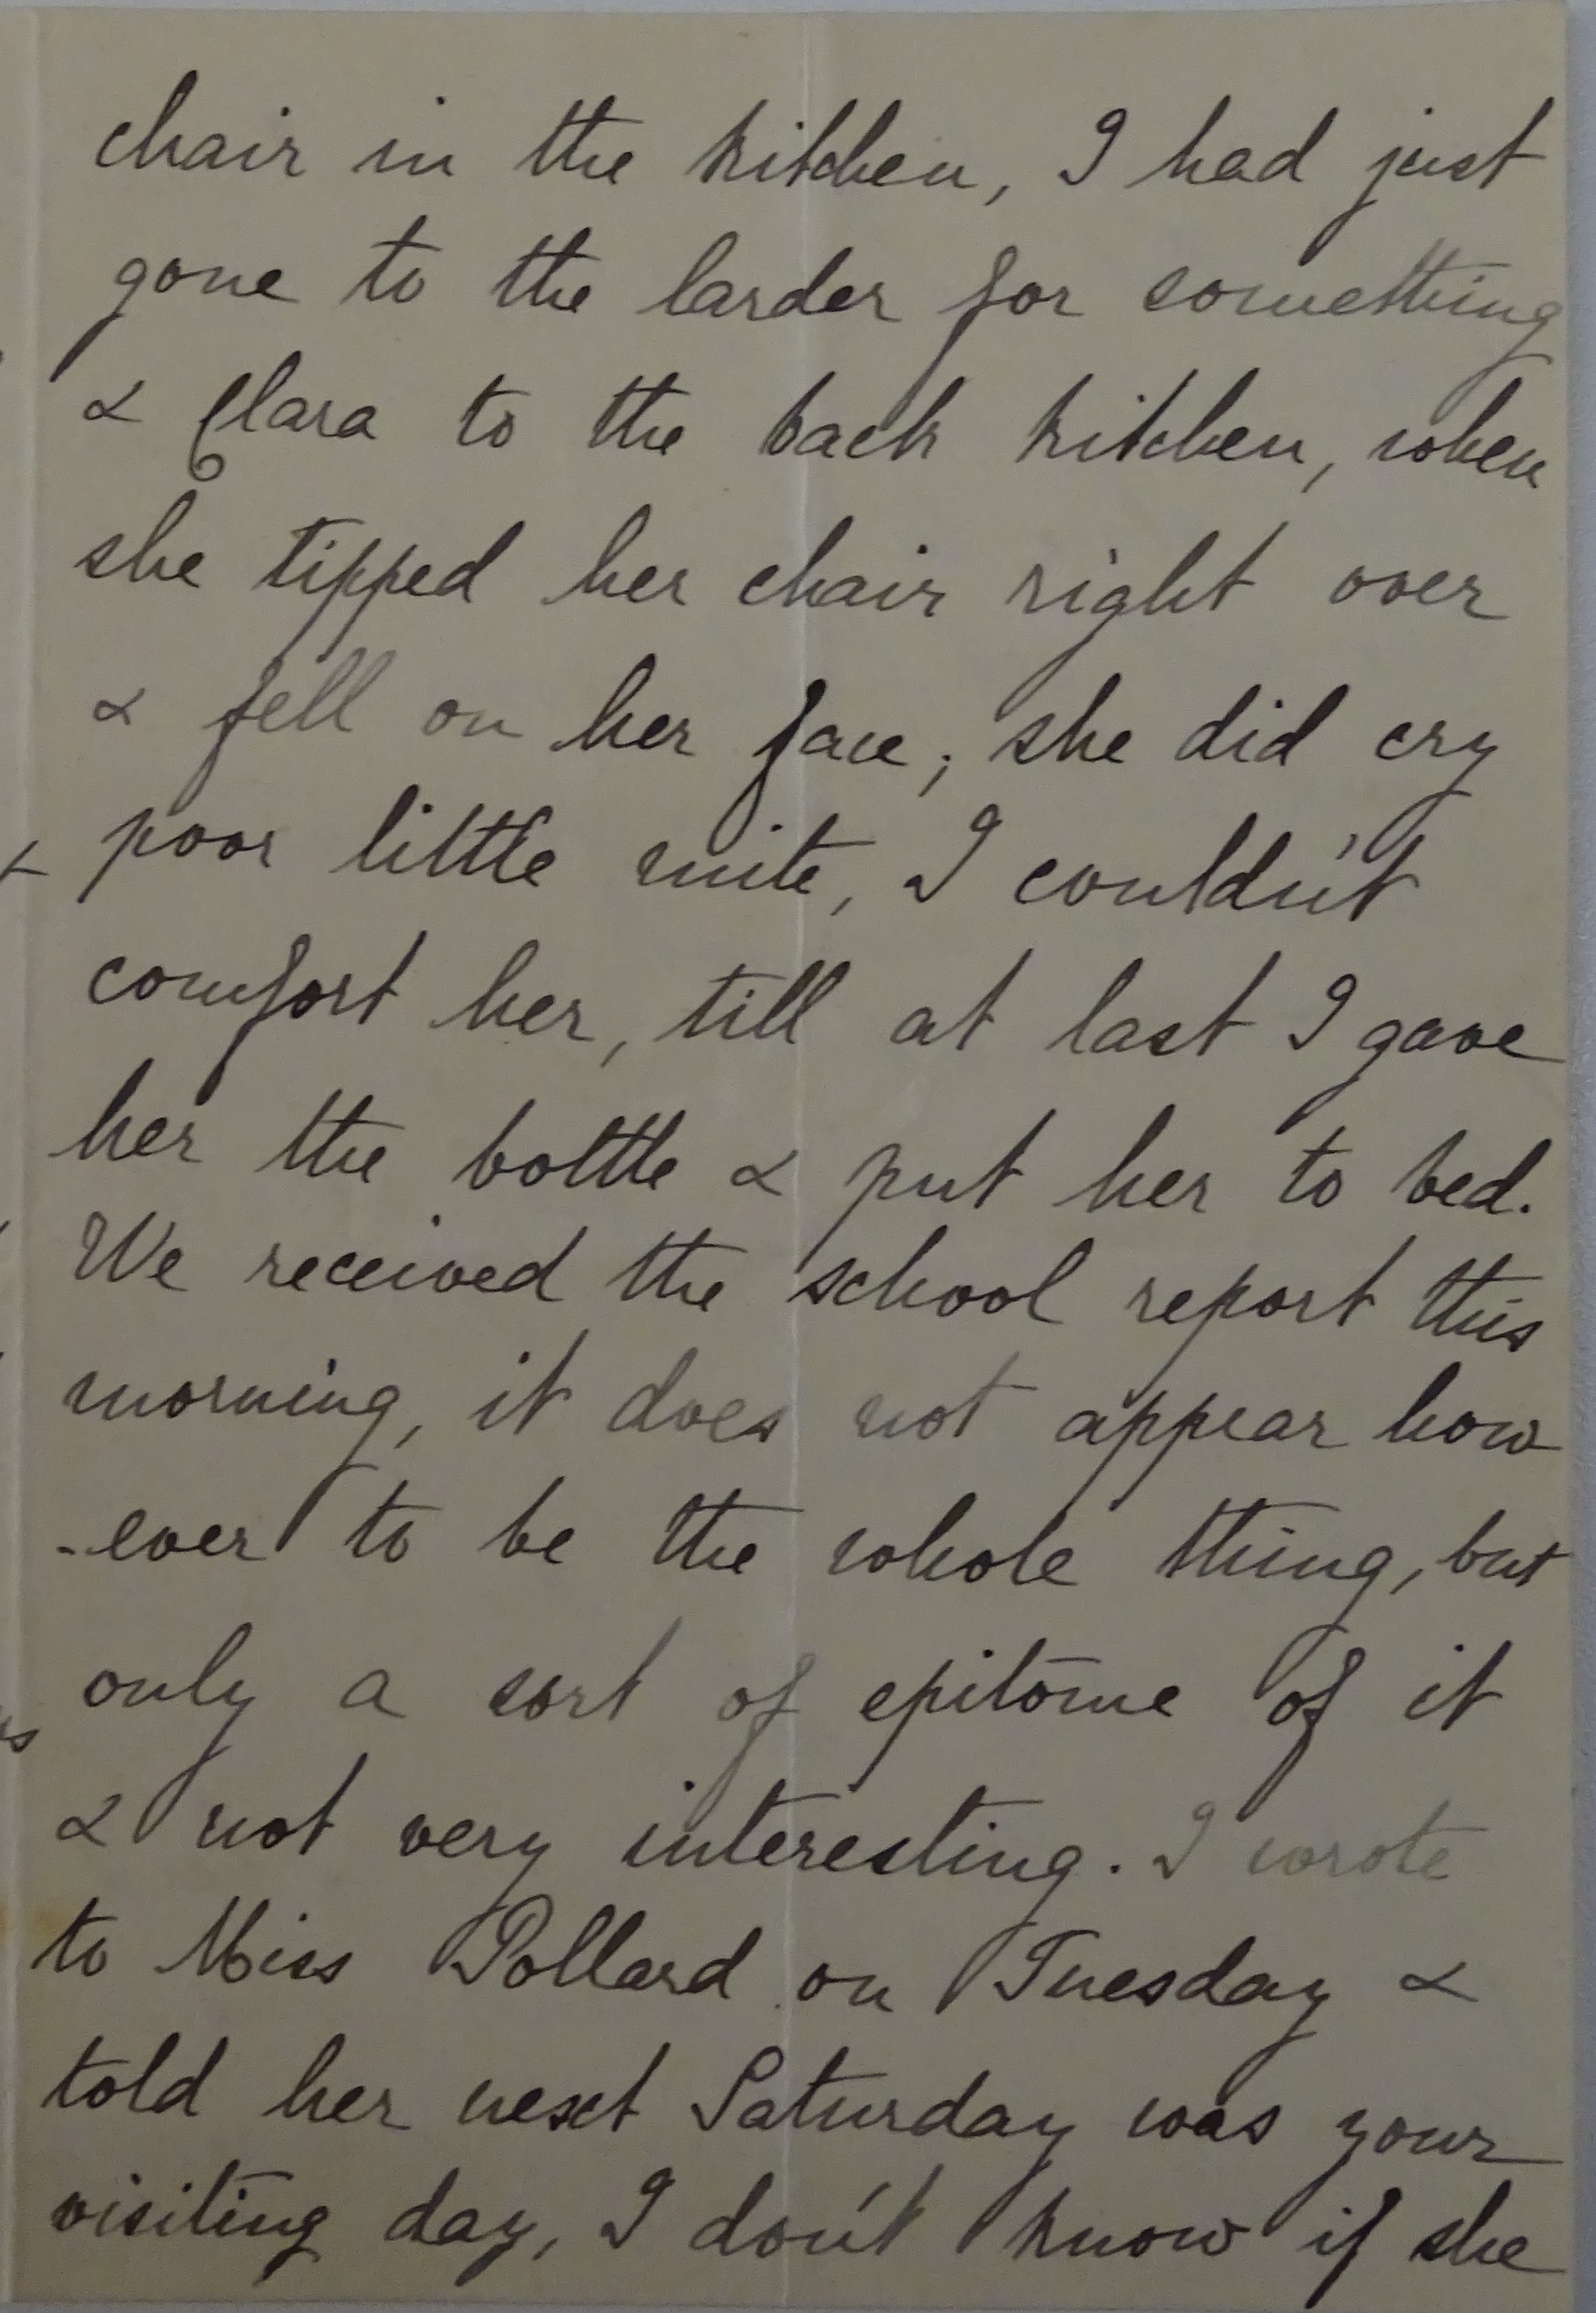 chair in the kitchen, I had just
gone to the larder for something
& Clara to the back kitchen, when
she tipped her chair right over
& fell on her face; she did cry
poor little mite, I couldn't
comfort her, till at last I gave
her the bottle & put her to bed.
We received the school report this
morning, it does not appear how
-ever to be the whole thing, but
only a sort of epitome of it
& not very interesting. I wrote
to Miss Pollard on Tuesday &
told her next Saturday was your
visiting day, I don't know if she